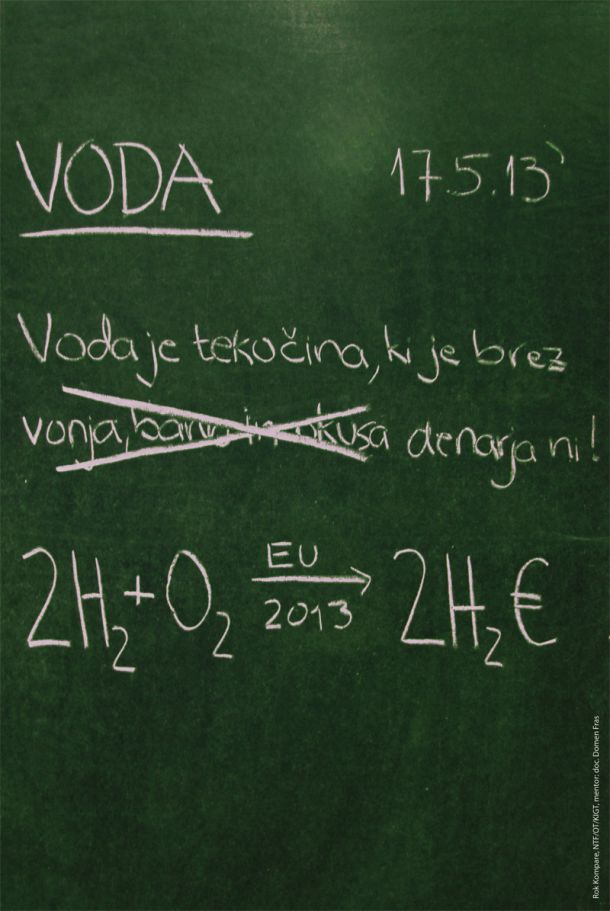 VODA 17.5.13'
Voda je tekočina, ki je brez
vonja, barve in okusa denarja ni!
2H₂+O₂ EU 2013 → 2H₂€
Rok Kompare, NTF/OT/KIGT, mentor: doc. Domen Fras